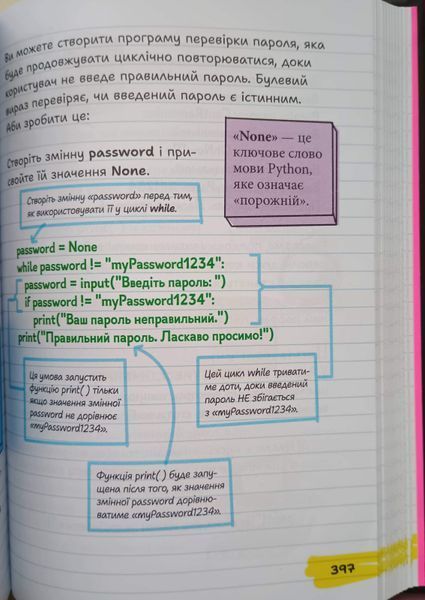 Ви можете створити програму перевірки пароля, яка
буде продовжувати циклічно повторюватися, доки
користувач не введе правильний пароль. Булевий
вираз перевіряє, чи введений пароль є істинним.
Аби зробити це:
«None» — це
ключове слово
мови Python,
яке означає
«порожній».
Створіть змінну password і при-
свойте їй значення None.
Створіть змінну «password» перед тим,
як використовувати її у циклі while.
password = None
while password != "myPassword1234":
password = input("Введіть пароль: ")
if password != "myPassword1234":
print("Ваш пароль неправильний.")
print("Правильний пароль. Ласкаво просимо!")
Ця умова запустить
функцію print( ) тільки
якщо значення змінної
password не дорівнює
«myPassword1234».
Цей цикл while тривати-
ме доти, доки введений
пароль НЕ збігається
з «myPassword1234».
Функція print( ) буде запу-
щена після того, як значення
змінної password дорівню-
ватиме «myPassword1234».
397